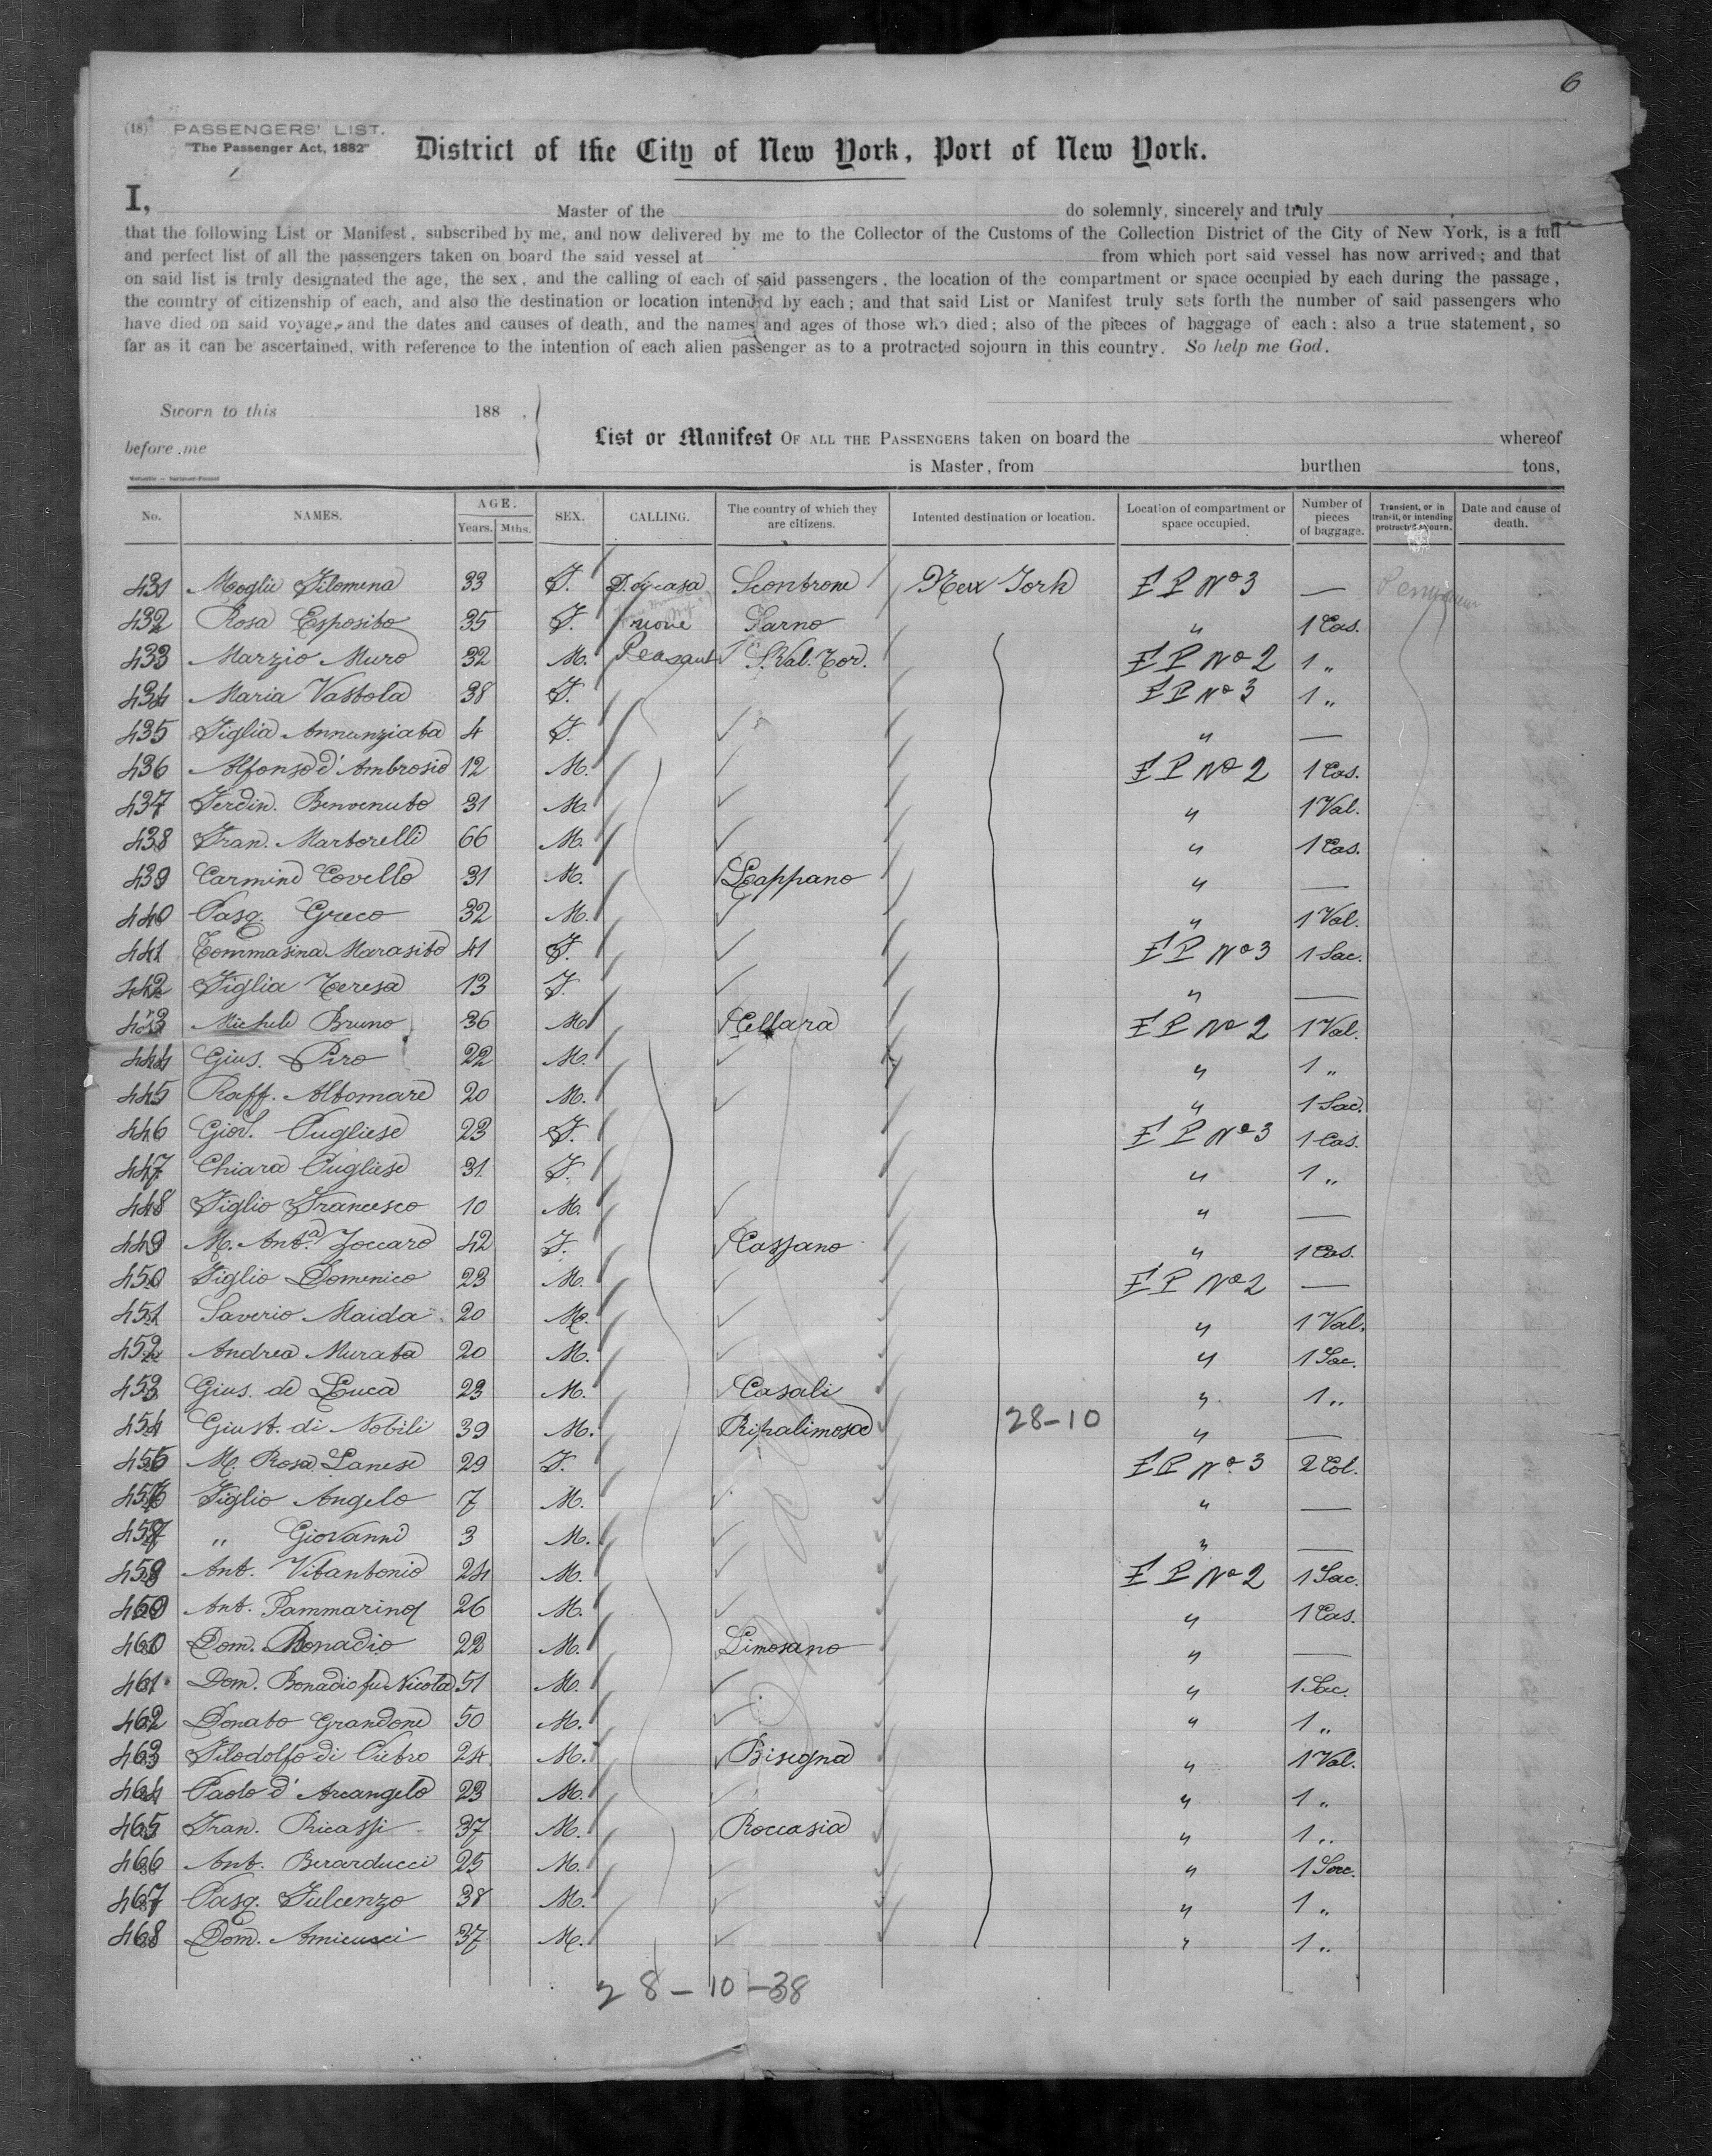 6
(18) PASSENGERS' LIST.
"The Passenger Act, 1882"
District of the City of New York, Port of New York.
I, Master of the do solemnly, sincerely and truly
that the following List or Manifest, subscribed by me, and now delivered by me to the Collector of the Customs of the Collection District of the City of New York, is a full
and perfect list of all the passengers taken on board the said vessel at from which port said vessel has now arrived; and that
on said list is truly designated the age, the sex, and the calling of each of said passengers, the location of the compartment or space occupied by each during the passage,
the country of citizenship of each, and also the destination or location intended by each; and that said List or Manifest truly sets forth the number of said passengers who
have died on said voyage, and the dates and causes of death, and the names and ages of those who died; also of the pieces of baggage of each: also a true statement, so
far as it can be ascertained, with reference to the intention of each alien passenger as to a protracted sojourn in this country. So help me God.
Sworn to this 188 .
before me
List or Manifest OF ALL THE PASSENGERS taken on board the whereof
is Master, from burthen tons,
No. NAMES. AGE. Years. Mths. SEX. CALLING. The country of which they are citizens. Intented destination or location. Location of compartment or space occupied. Number of pieces of baggage. Transient, or in transit, or intending protracted sojourn. Date and cause of death.
431 Moglie Filomena 33 F. D. di casa Scontrone New York E P No 3 —
432 Rosa Esposito 35 F. none Sarno " 1 Cas.
433 Marzio Muro 32 M. Peasant S. Val. Tor. E P No 2 1 "
434 Maria Vastola 38 F. E P No 3 1 "
435 Figlia Annunziata 4 F. " —
436 Alfonso d'Ambrosio 12 M. E P No 2 1 Cas.
437 Ferdin. Benvenuto 31 M. " 1 Val.
438 Fran. Martorelli 66 M. " 1 Cas.
439 Carmine Covello 31 M. Lappano " —
440 Pasq. Greco 32 M. " 1 Val.
441 Tommasina Marasito 41 F. E P No 3 1 Sac.
442 Figlia Teresa 13 F. " —
443 Michele Bruno 36 M. Cellara E P No 2 1 Val.
444 Gius. Piro 22 M. " 1 "
445 Raff. Altomare 20 M. " 1 Sac.
446 Giov. Pugliese 23 F. E P No 3 1 Cas.
447 Chiara Pugliese 31 F. " 1 "
448 Figlio Francesco 10 M. " —
449 M. Ant.a Zoccaro 42 F. Cassano " 1 Cas.
450 Figlio Domenico 23 M. E P No 2 —
451 Saverio Maida 20 M. " 1 Val.
452 Andrea Murata 20 M. " 1 Sac.
453 Gius. de Luca 23 M. Casali " 1 "
454 Giust. di Nobili 39 M. Ripalimosa 28-10 " —
455 M. Rosa Lanese 29 F. E P No 3 2 Col.
456 Figlio Angelo 7 M. " —
457 " Giovanni 3 M. " —
458 Ant. Vitantonio 24 M. E P No 2 1 Sac.
459 Ant. Iammarino 26 M. " 1 Cas.
460 Dom. Bonadio 22 M. Limosano " —
461 Dom. Bonadio fu Nicola 51 M. " 1 Sac.
462 Donato Grandone 50 M. " 1 "
463 Filodolfo di Pietro 24 M. Bisegna " 1 Val.
464 Paolo d'Arcangelo 23 M. " 1 "
465 Fran. Ricassi 37 M. Roccasia " 1 "
466 Ant. Berarducci 25 M. " 1 Sac.
467 Pasq. Fulcenzo 38 M. " 1 "
468 Dom. Amicucci 37 M. " 1 "
28-10-38